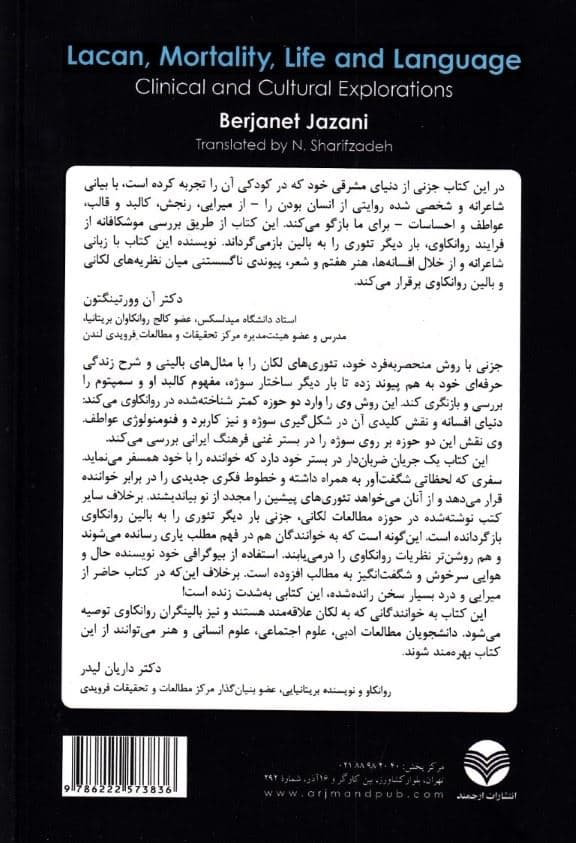 Lacan, Mortality, Life and Language
Clinical and Cultural Explorations
Berjanet Jazani
Translated by N. Sharifzadeh
در این کتاب جزنی از دنیای مشرقی خود که در کودکی آن را تجربه کرده است، با بیانی
شاعرانه و شخصی شده روایتی از انسان بودن را – از میرایی، رنجش، کالبد و قالب،
عواطف و احساسات – برای ما بازگو می‌کند. این کتاب از طریق بررسی موشکافانه از
فرایند روانکاوی، بار دیگر تئوری را به بالین بازمی‌گرداند. نویسنده این کتاب با زبانی
شاعرانه و از خلال افسانه‌ها، هنر هفتم و شعر، پیوندی ناگسستنی میان نظریه‌های لکانی
و بالین روانکاوی برقرار می‌کند.
دکتر آن وورتینگتون
استاد دانشگاه میدلسکس، عضو کالج روانکاوان بریتانیا،
مدرس و عضو هیئت‌مدیره مرکز تحقیقات و مطالعات فرویدی لندن
جزنی با روش منحصربه‌فرد خود، تئوری‌های لکان را با مثال‌های بالینی و شرح زندگی
حرفه‌ای خود به هم پیوند زده تا بار دیگر ساختار سوژه، مفهوم کالبد او و سمپتوم را
بررسی و بازنگری کند. این روش وی را وارد دو حوزه کمتر شناخته‌شده در روانکاوی می‌کند:
دنیای افسانه و نقش کلیدی آن در شکل‌گیری سوژه و نیز کاربرد و فنومنولوژی عواطف.
وی نقش این دو حوزه بر روی سوژه را در بستر غنی فرهنگ ایرانی بررسی می‌کند.
این کتاب یک جریان ضربان‌دار در بستر خود دارد که خواننده را با خود همسفر می‌نماید.
سفری که لحظاتی شگفت‌آور به همراه داشته و خطوط فکری جدیدی را در برابر خواننده
قرار می‌دهد و از آنان می‌خواهد تئوری‌های پیشین را مجدد از نو بیاندیشند. برخلاف سایر
کتب نوشته‌شده در حوزه مطالعات لکانی، جزنی بار دیگر تئوری را به بالین روانکاوی
بازگردانده است. این‌گونه است که به خوانندگان هم در فهم مطلب یاری رسانده می‌شوند
و هم روشن‌تر نظریات روانکاوی را درمی‌یابند. استفاده از بیوگرافی خود نویسنده حال و
هوایی سرخوش و شگفت‌انگیز به مطالب افزوده است. برخلاف این‌که در کتاب حاضر از
میرایی و درد بسیار سخن رانده‌شده، این کتابی به‌شدت زنده است!
این کتاب به خوانندگانی که به لکان علاقه‌مند هستند و نیز بالینگران روانکاوی توصیه
می‌شود. دانشجویان مطالعات ادبی، علوم اجتماعی، علوم انسانی و هنر می‌توانند از این
کتاب بهره‌مند شوند.
دکتر داریان لیدر
روانکاو و نویسنده بریتانیایی، عضو بنیان‌گذار مرکز مطالعات و تحقیقات فرویدی
مرکز پخش: ۴۰ ۲۰ ۹۸ ۸۸ ۰۲۱
تهران، بلوار کشاورز، بین کارگر و ۱۶ آذر، شمارهٔ ۲۹۲
www.arjmandpub.com
انتشارات ارجمند
9 786222 573836